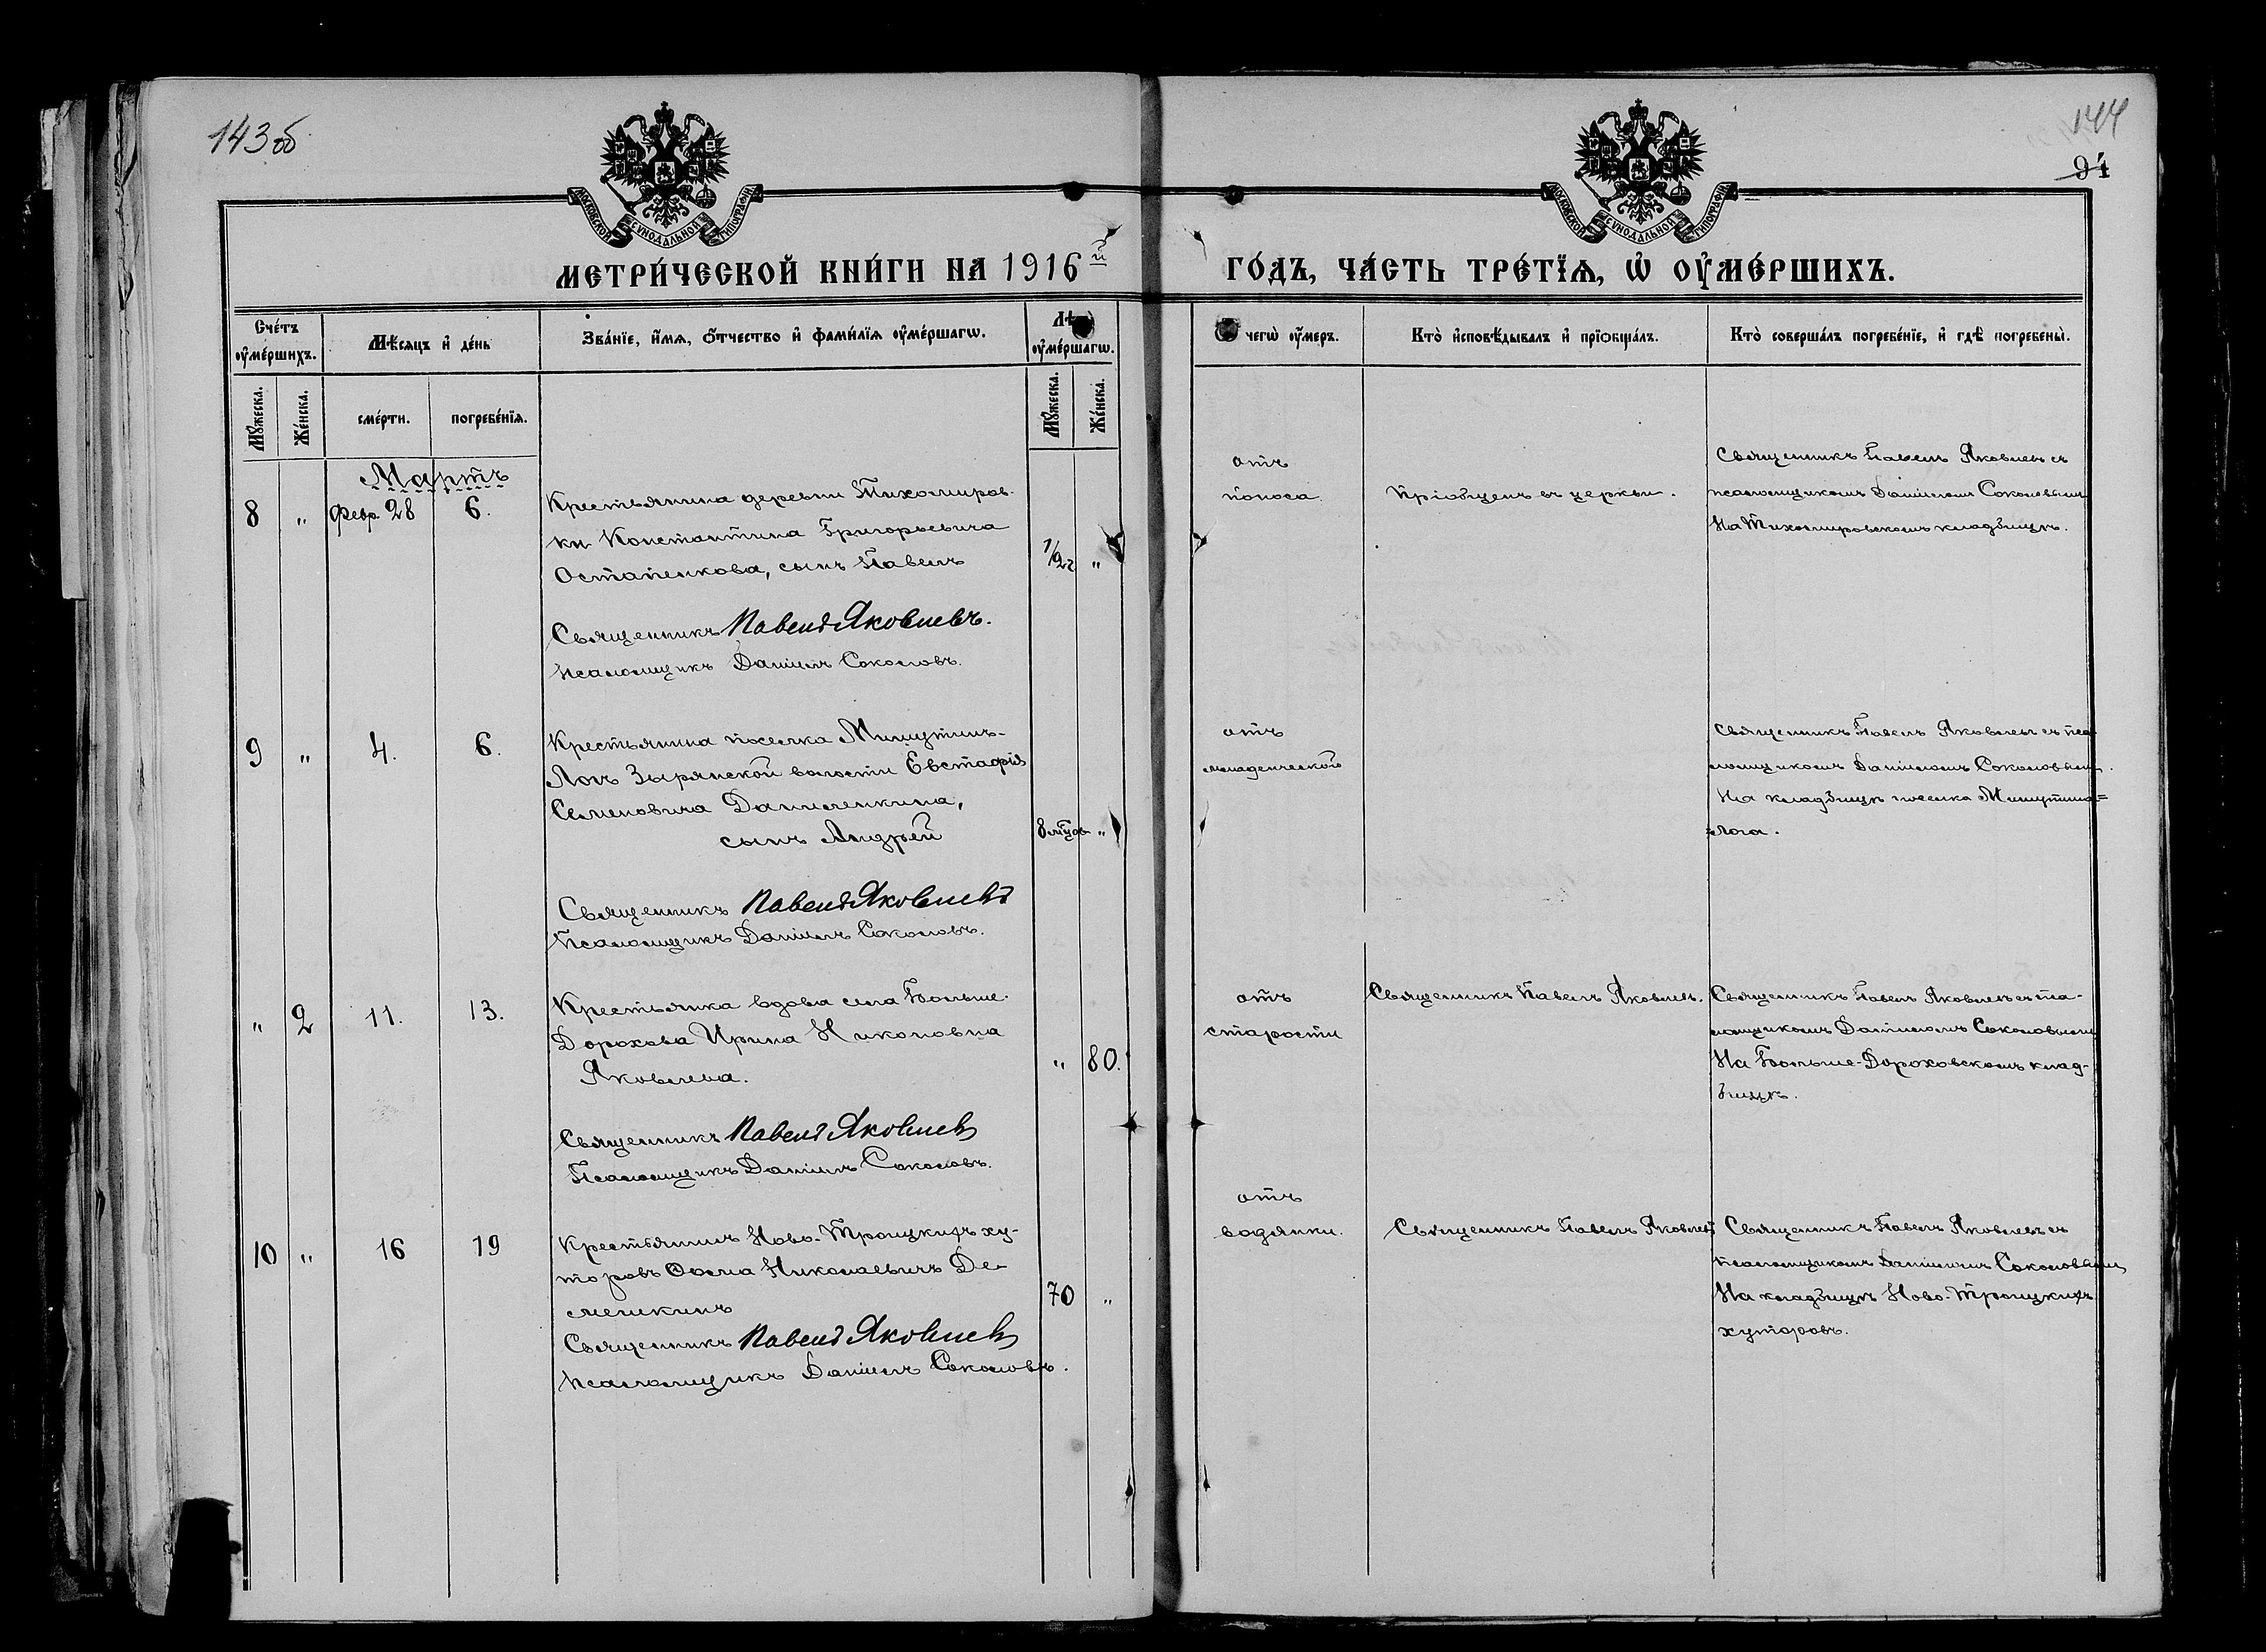 143 об
144
94
МОСКОВСКОЙ СѴНОДАЛЬНОЙ ТИПОГРАФІИ
МОСКОВСКОЙ СѴНОДАЛЬНОЙ ТИПОГРАФІИ
МЕТРИ́ЧЕСКОЙ КНИ́ГИ НА 1916й
ГО́ДЪ, ЧА́СТЬ ТРЕ́ТЇѦ, Ѡ҆ ОУ҆МЕ́РШИХЪ.
Сче́тъ оу҆ме́ршихъ.
Мѣ́сяцъ и҆ де́нь
Зва́нїе, и҆́мѧ, ѻ҆́тчество и҆ фами́лїѧ оу҆ме́ршагѡ.
Лѣ оу҆ме́ршагѡ.
чегѡ̀ оу҆́меръ.
Кто̀ и҆сповѣ́дывалъ и҆ прїѡбща́лъ.
Кто̀ соверша́лъ погребе́нїе, и҆ гдѣ̀ погребены̀.
Мꙋ́жеска.
Же́нска.
сме́рти.
погребе́нїѧ.
Мꙋ́жеска.
Же́нска.
Мартъ
8 " Февр. 28 6.
Крестьянина деревни Тихомиров-
ки Константина Григорьевича
Остапенкова, сынъ Павелъ
1/2 г "
Священникъ Павелъ Яковлевъ.
Псаломщикъ Даніилъ Соколовъ.
отъ
поноса.
Пріобщенъ въ церкви.
Священникъ Павелъ Яковлевъ съ
псаломщикомъ Даніиломъ Соколовымъ
На Тихомировскомъ кладбищѣ.
9 " 4. 6.
Крестьянина поселка Мишутинъ-
Логъ Зырянской волости Евстафія
Семеновича Даниленкина,
сынъ Андрей
8 мѣцов "
Священникъ Павелъ Яковлевъ
Псаломщикъ Даніилъ Соколовъ.
отъ
младенческой
Священникъ Павелъ Яковлевъ съ пса-
ломщикомъ Даніиломъ Соколовымъ.
На кладбищѣ поселка Мишутина=
=Лога.
" 2 11. 13.
Крестьянка вдова села Больше-
Дорохова Ирина Никоновна
Яковлева.
" 80.
Священникъ Павелъ Яковлевъ
Псаломщикъ Даніилъ Соколовъ.
отъ
старости
Священникъ Павелъ Яковлевъ.
Священникъ Павелъ Яковлевъ съ пса-
ломщикомъ Даніиломъ Соколовымъ
На Больше-Дороховскомъ клад-
бищѣ.
10 " 16 19
Крестьянинъ Ново-Троицкихъ ху-
торовъ Ѳома Николаевичъ Де-
мешкинъ
70 "
Священникъ Павелъ Яковлевъ
Псаломщикъ Даніилъ Соколовъ.
отъ
водянки.
Священникъ Павелъ Яковлевъ
Священникъ Павелъ Яковлевъ съ
псаломщикомъ Даніиломъ Соколовымъ
На кладбищѣ Ново-Троицкихъ
хуторовъ.